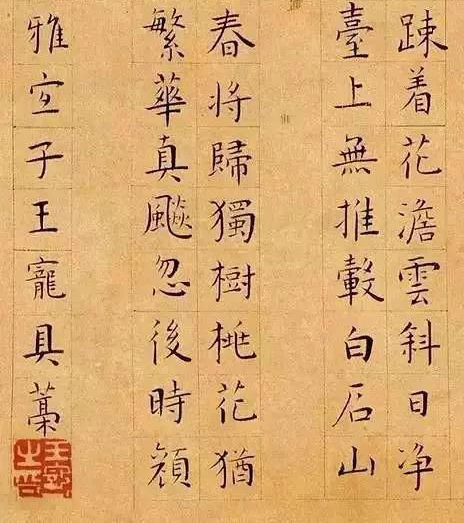 踈着花澹雲斜日净
臺上無推轂白石山
春將歸獨樹桃花猶
繁華真飇忽後時顔
雅宜子王寵具藁
王寵之印